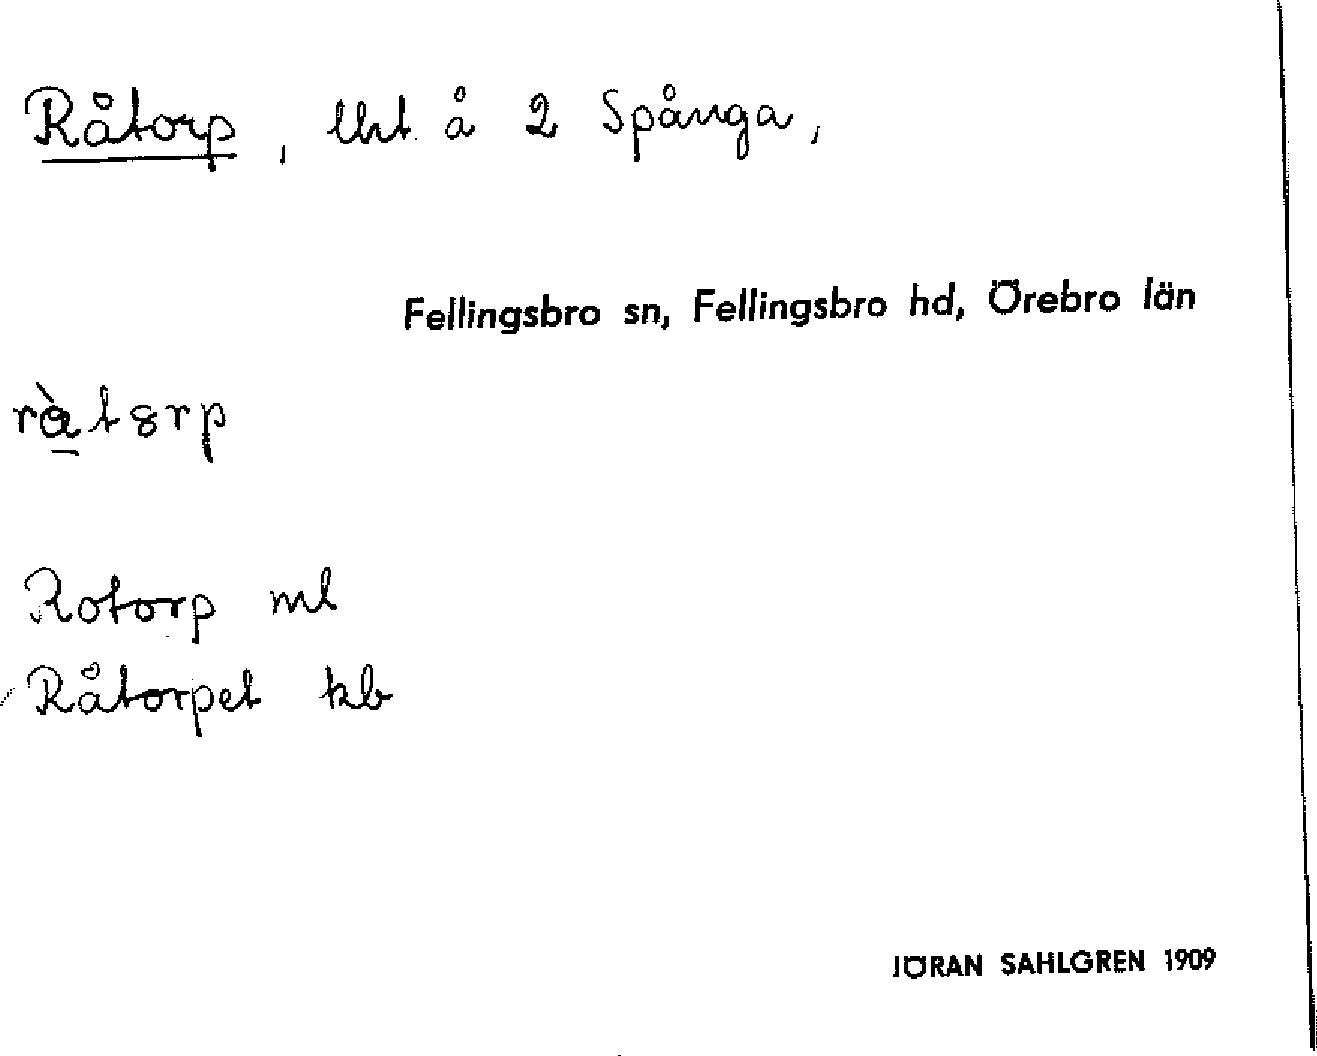 Råtorp, lht. å 2 Spånga,
Fellingsbro sn, Fellingsbro hd, Örebro län
Rotorp ml
Råtorpet kb
JÖRAN SAHLGREN 1909